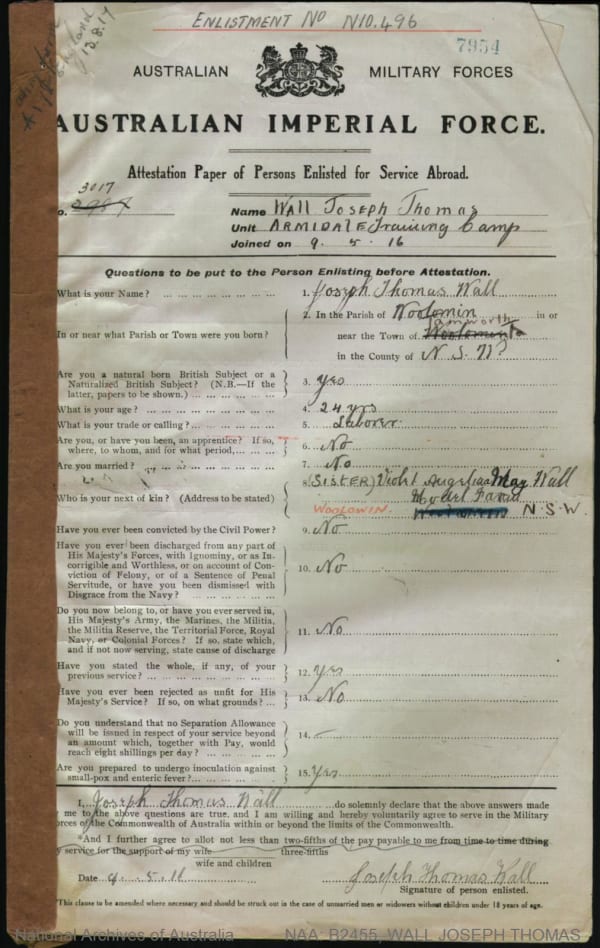 ENLISTMENT NO N10.496
7954
England
13.8.17
AUSTRALIAN MILITARY FORCES
AUSTRALIAN IMPERIAL FORCE.
Attestation Paper of Persons Enlisted for Service Abroad.
3017
o. Name Wall Joseph Thomas
Unit ARMIDALE Training Camp
Joined on 9 . 5 . 16
Questions to be put to the Person Enlisting before Attestation.
What is your Name? ... 1. Joseph Thomas Wall
In or near what Parish or Town were you born? 2. In the Parish of Woolomin in or
near the Town of Tamworth
in the County of N. S. W
Are you a natural born British Subject or a
Naturalized British Subject? (N.B.—If the
latter, papers to be shown.) ... 3. Yes
What is your age? ... 4. 24 yrs
What is your trade or calling? ... 5. Laborer
Are you, or have you been, an apprentice? If so,
where, to whom, and for what period, ... 6. No
Are you married? ... 7. No
Who is your next of kin? (Address to be stated) 8. (SISTER) Violet Angelina May Wall
Model Farm
WOOLOWIN N.S.W.
Have you ever been convicted by the Civil Power? 9. No
Have you ever been discharged from any part of
His Majesty's Forces, with Ignominy, or as In-
corrigible and Worthless, or on account of Con-
viction of Felony, or of a Sentence of Penal
Servitude, or have you been dismissed with
Disgrace from the Navy? ... 10. No
Do you now belong to, or have you ever served in,
His Majesty's Army, the Marines, the Militia,
the Militia Reserve, the Territorial Force, Royal
Navy, or Colonial Forces? If so, state which,
and if not now serving, state cause of discharge 11. No
Have you stated the whole, if any, of your
previous service? ... 12. Yes
Have you ever been rejected as unfit for His
Majesty's Service? If so, on what grounds? ... 13. No
Do you understand that no Separation Allowance
will be issued in respect of your service beyond
an amount which, together with Pay, would
reach eight shillings per day? ... 14. —
Are you prepared to undergo inoculation against
small-pox and enteric fever? ... 15. Yes
I, Joseph Thomas Wall do solemnly declare that the above answers made
me to the above questions are true, and I am willing and hereby voluntarily agree to serve in the Military
orces of the Commonwealth of Australia within or beyond the limits of the Commonwealth.
*And I further agree to allot not less than two-fifths of the pay payable to me from time to time during
y service for the support of my wife three-fifths
wife and children
Date 9. 5. 16 Joseph Thomas Wall
Signature of person enlisted.
*This clause to be amended where necessary and should be struck out in the case of unmarried men or widowers without children under 18 years of age.
National Archives of Australia NAA: B2455, WALL JOSEPH THOMAS